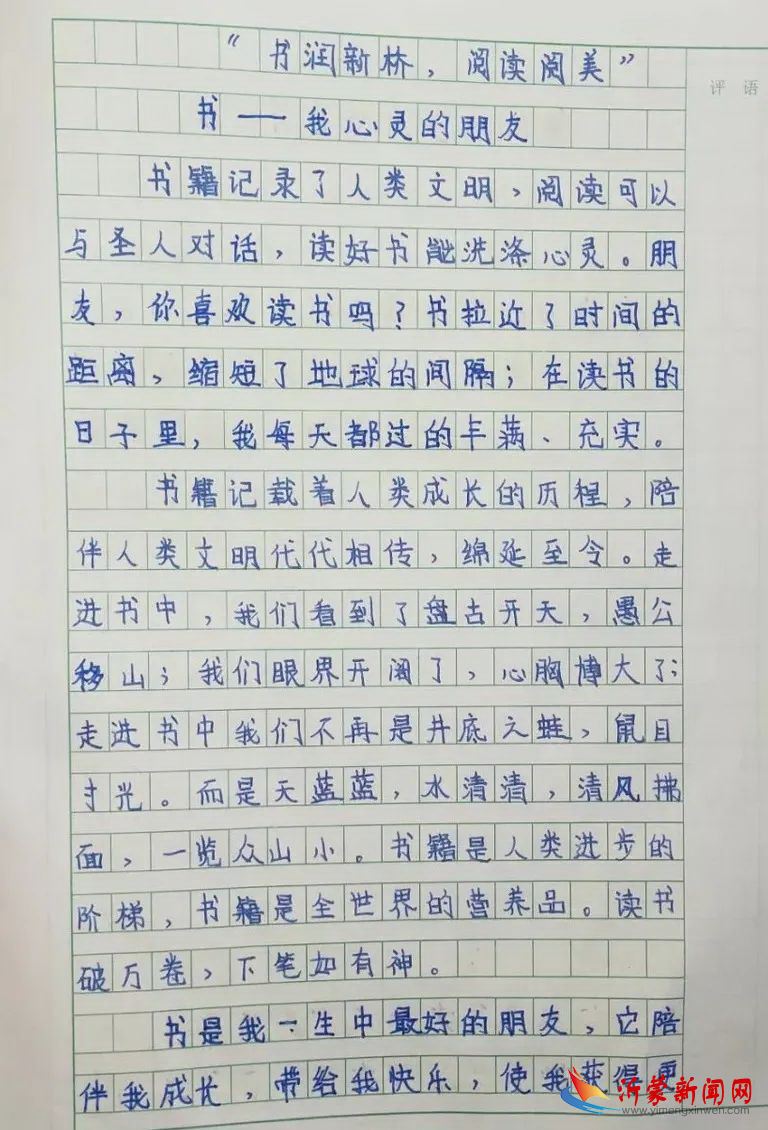 “书润新桥，阅读阅美”
评 语
书——我心灵的朋友
书籍记录了人类文明，阅读可以
与圣人对话，读好书能洗涤心灵。朋
友，你喜欢读书吗？书拉近了时间的
距离，缩短了地球的间隔；在读书的
日子里，我每天都过的丰满、充实。
书籍记载着人类成长的历程，陪
伴人类文明代代相传，绵延至今。走
进书中，我们看到了盘古开天，愚公
移山；我们眼界开阔了，心胸博大了；
走进书中我们不再是井底之蛙，鼠目
寸光。而是天蓝蓝，水清清，清风拂
面，一览众山小。书籍是人类进步的
阶梯，书籍是全世界的营养品。读书
破万卷，下笔如有神。
书是我一生中最好的朋友，它陪
伴我成长，带给我快乐，使我获得更
沂蒙新闻网
www.yimengxinwen.com